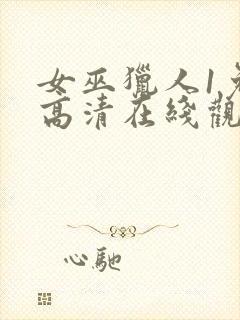 女巫獵人1免
高清在綫觀
心馳